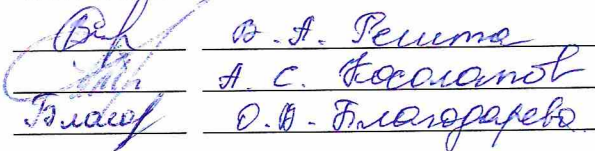 В. А. Решта
А. С. Косолапов
Благод О. В. Благодарева